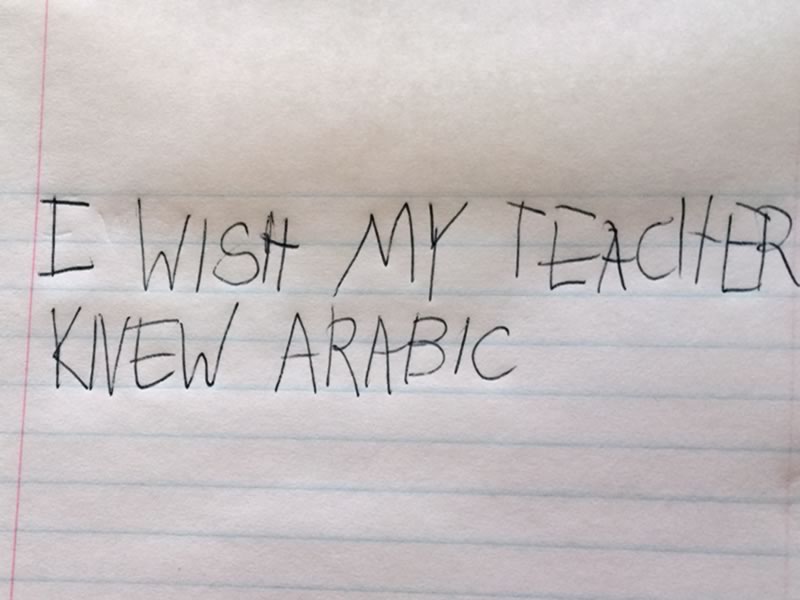 I WISH MY TEACHER
KNEW ARABIC